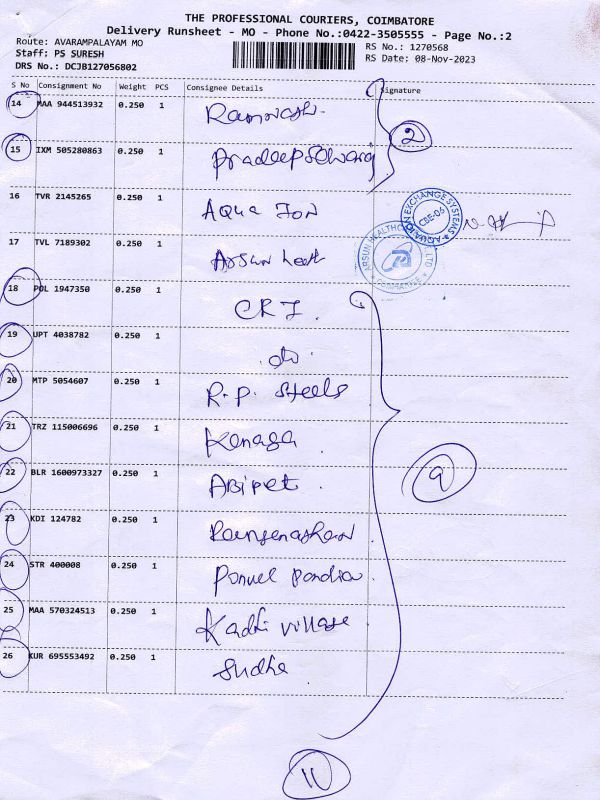 THE PROFESSIONAL COURIERS, COIMBATORE
Delivery Runsheet - MO - Phone No.:0422-3505555 - Page No.:2
Route: AVARAMPALAYAM MO
RS No.: 1270568
Staff: PS SURESH
RS Date: 08-Nov-2023
DRS No.: DCJB127056802
S No Consignment No Weight PCS Consignee Details Signature
14 MAA 944513932 0.250 1
15 IXM 505280863 0.250 1 Pradeep Selvaraj
2
16 TVR 2145265 0.250 1 AQua Ion
AQUAION EXCHANGE SYSTEMS CBE-06
17 TVL 7189302 0.250 1 Arsun heath
ARSUN HEALTHC LTD COIMBATORE
18 POL 1947350 0.250 1 CRI.
19 UPT 4038782 0.250 1 do
20 MTP 5054607 0.250 1 R.P. Steels
21 TRZ 115006696 0.250 1 Kanaga
22 BLR 1600973327 0.250 1
9
23 KDI 124782 0.250 1
24 STR 400008 0.250 1 Pandian
25 MAA 570324513 0.250 1 Kadhi village
26 KUR 695553492 0.250 1 Sudha
11